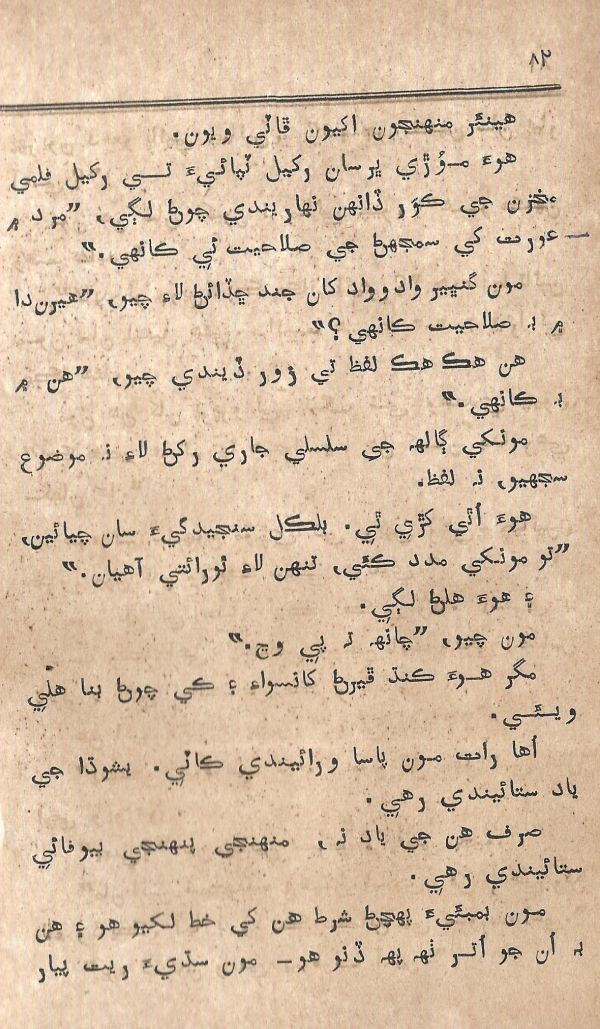 ۸۲
هينئر منهنجون اکيون ڦاٽي ويون.
هوءَ مــوُڙي ڀرسان رکيل ٽپائيءَ تــي رکيل فلمي
مخزن جي ڪوَر ڏانهن نهاريندي چوڻ لڳي، ”مرد ۾
— عورت کي سمجهڻ جي صلاحيت ئي ڪانهي.“
مون گنڀير واد وواد کان جند ڇڏائڻ لاءِ چيو، ”هيرن دا
۾ بہ صلاحيت ڪانهي؟“
هن هڪ هڪ لفظ تي زور ڏيندي چيو، ”هن ۾
بہ ڪانهي.“
مونکي ڳالهہ جي سلسلي جاري رکڻ لاءِ نہ موضوع
سجهيو، نہ لفظ.
هوءَ اُٿي کڙي ٿي. بلڪل سنجيدگيءَ سان چيائين،
”تو مونکي مدد ڪئي، تنهن لاءِ ٿورائتي آهيان.“
۽ هوءَ هلڻ لڳي.
مون چيو، ”چانهہ تہ پي وڃ.“
مگر هــوءَ ڪنڌ ڦيرڻ کانسواءِ ۽ ڪي چوڻ بنا هلي
ويــئــي.
اُها رات مون پاسا ورائيندي ڪاٽي. يشوڌا جي
ياد ستائيندي رهي.
صرف هن جي ياد نہ، منهنجي پنهنجي بيوفائي
ستائيندي رهي.
مــون بمبئيءَ پهچڻ شرط هن کي خط لکيو هو ۽ هن
بہ اُن جو اُتــر ٺهہ پهہ ڏنو هو— مون سڌيءَ ريت پيار